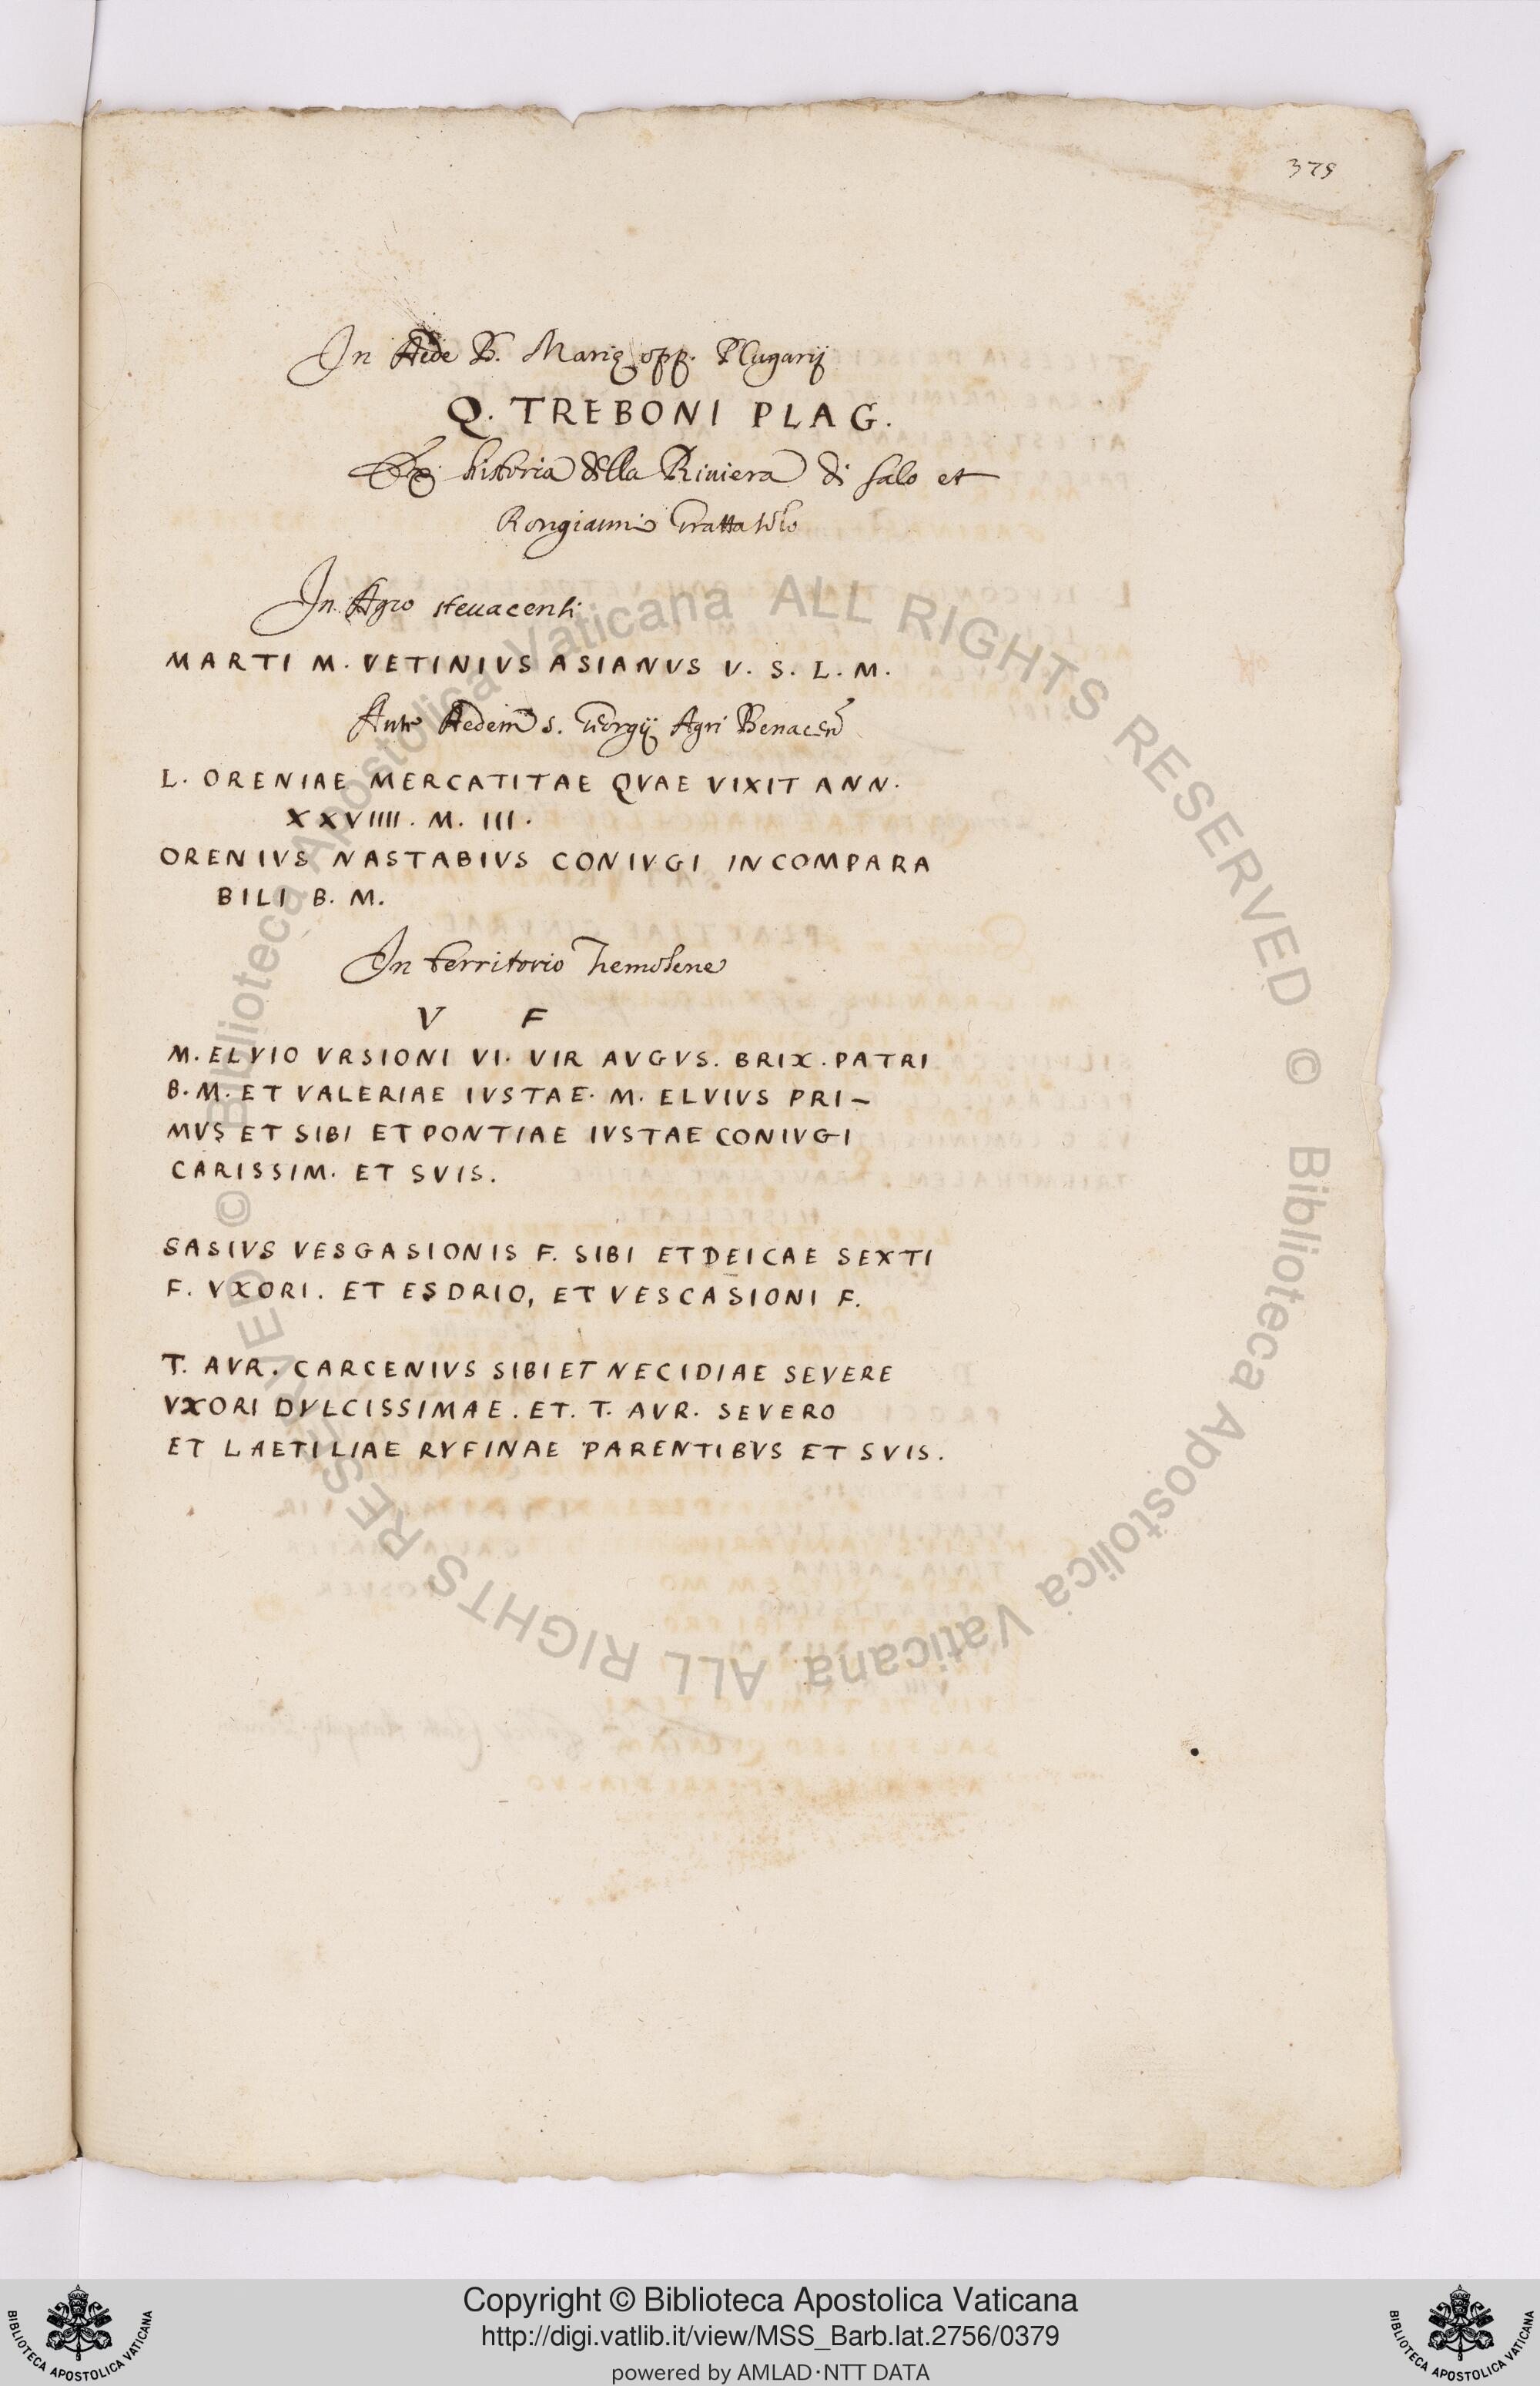 375
In Aede B. Marię opp. Plugarij
Q. TREBONI PLAG.
Ex historia della Riuiera di salo et
Rongianni
In Agro
MARTI M. VETINIVS ASIANVS V. S. L. M.
Ante Aedem s. Georgij Agri Benacen
L. ORENIAE MERCATITAE QVAE VIXIT ANN.
XXVIIII. M. III.
ORENIVS NASTABIVS CONIVGI INCOMPARA
BILI B. M.
In territorio
V F
M. ELVIO VRSIONI VI. VIR AVGVS. BRIX. PATRI
B. M. ET VALERIAE IVSTAE. M. ELVIVS PRI-
MVS ET SIBI ET PONTIAE IVSTAE CONIVGI
CARISSIM. ET SVIS.
SASIVS VESGASIONIS F. SIBI ET DEICAE SEXTI
F. VXORI. ET ESDRIO, ET VESCASIONI F.
T. AVR. CARCENIVS SIBI ET NECIDIAE SEVERE
VXORI DVLCISSIMAE. ET. T. AVR. SEVERO
ET LAETILIAE RVFINAE PARENTIBVS ET SVIS.
© Biblioteca Apostolica Vaticana ALL RIGHTS RESERVED © Biblioteca Apostolica Vaticana ALL RIGHTS RESERVED
BIBLIOTECA APOSTOLICA VATICANA
Copyright © Biblioteca Apostolica Vaticana
http://digi.vatlib.it/view/MSS_Barb.lat.2756/0379
powered by AMLAD·NTT DATA
BIBLIOTECA APOSTOLICA VATICANA